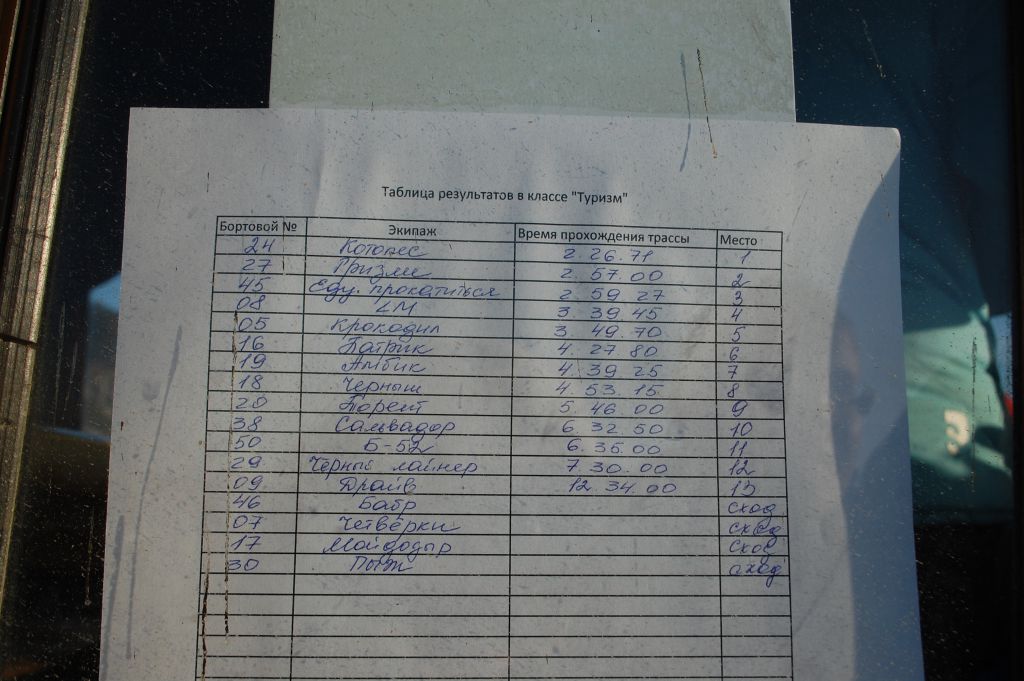 Таблица результатов в классе "Туризм"
Бортовой № Экипаж Время прохождения трассы Место
24 Котопес 2. 26. 71 1
27 Гризли 2. 57. 00 2
45 Еду. прокатиться 2 59 27 3
08 3. 39 45 4
05 Крокодил 3. 49. 70 5
16 Патрик 4. 27. 80 6
19 Амбик 4. 39 25 7
18 Черныш 4. 53. 15 8
20 5. 46. 00 9
38 Сальвадор 6. 32 50 10
50 Б-52 6. 35. 00 11
29 Чёрный лайнер 7 30. 00 12
09 Драйв 12. 34. 00 13
46 Бобр сход
07 Четвёрки сход
17 Мойдодыр сход
30 Пыж сход